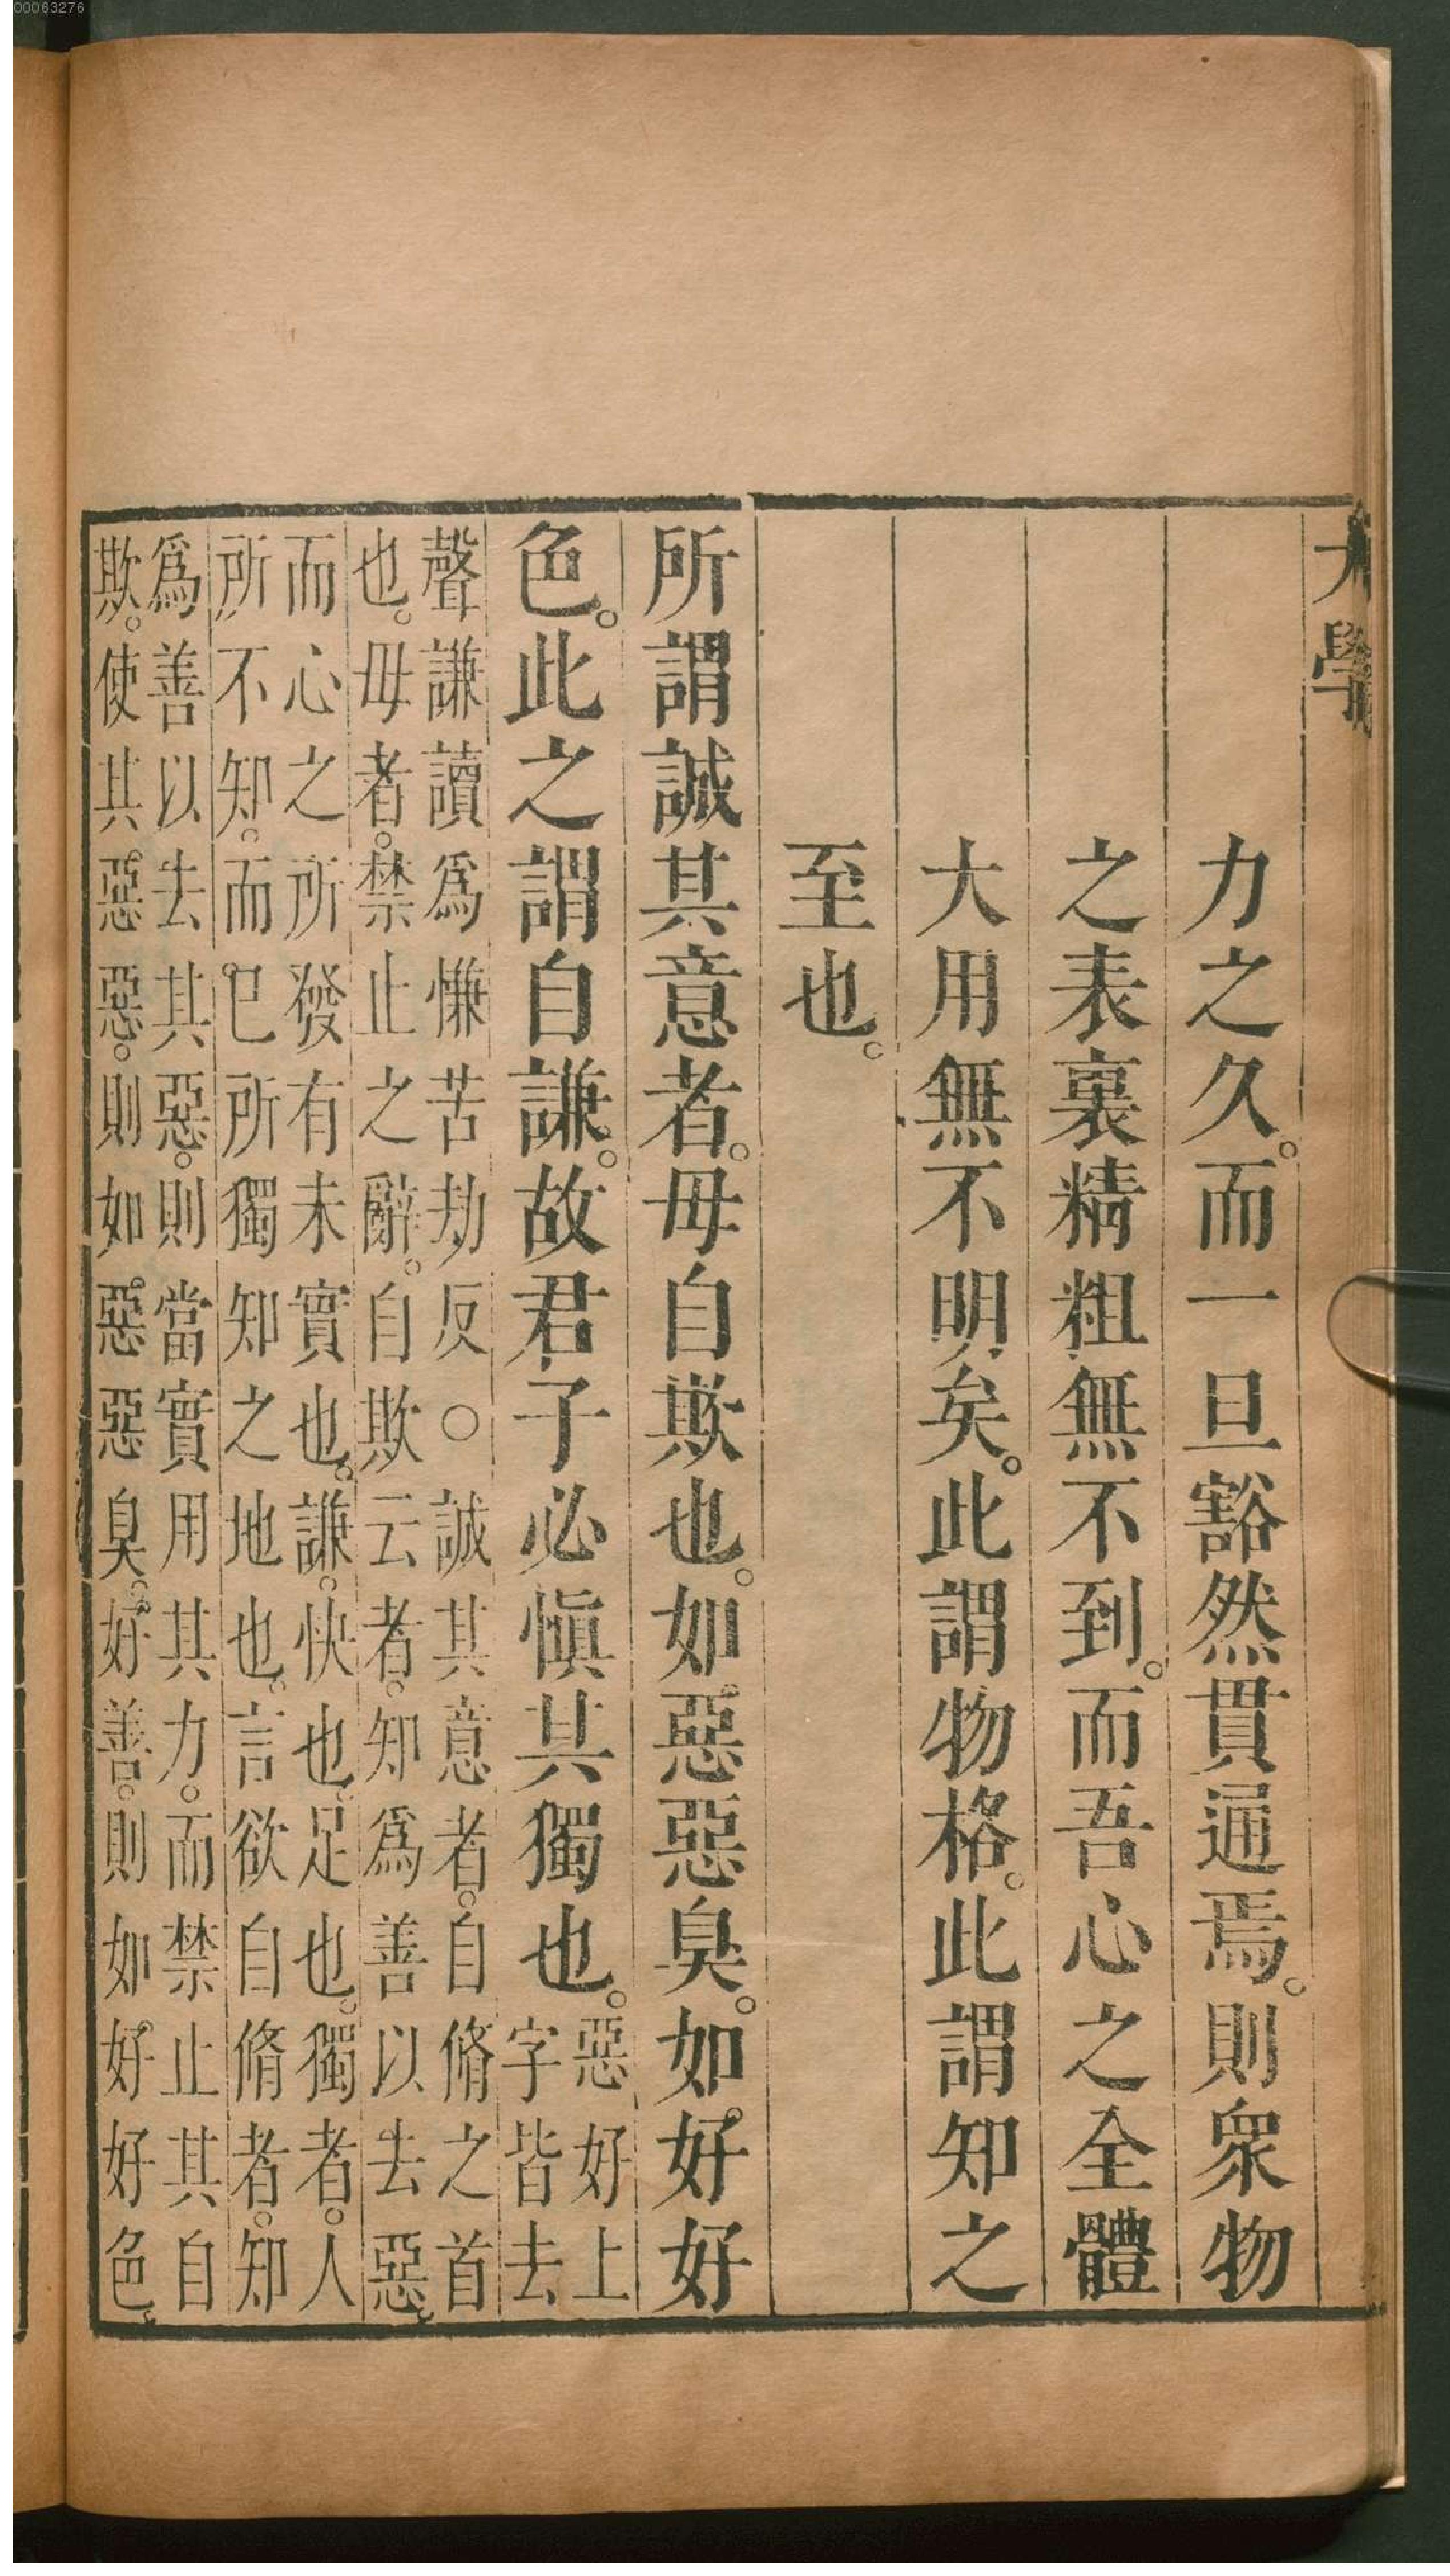 00063276
大學
力之久。而一旦豁然貫通焉。則衆物
之表裏精粗無不到。而吾心之全體
大用無不明矣。此謂物格。此謂知之
至也。
所謂誠其意者。毋自欺也。如惡惡臭。如好好
色。此之謂自謙。故君子必慎其獨也。惡好上
字皆去
聲謙讀爲慊苦劫反○誠其意者。自脩之首
也。毋者。禁止之辭。自欺云者。知爲善以去惡。
而心之所發有未實也。謙。快也。足也。獨者。人
所不知。而已所獨知之地也。言欲自脩者。知
爲善以去其惡。則當實用其力。而禁止其自
欺。使其惡惡。則如惡惡臭。好善。則如好好色。